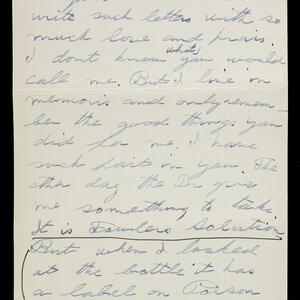 write such letters with so
much love and prais
I dont know what you would
call me. But I love on
memoris and only remem
ber the good things you
did for me. I have
such fait in you. The
other day the Dr give
me something to take
It is Fowlers Solution
But when I looked
at the bottle it has
a label on Poison